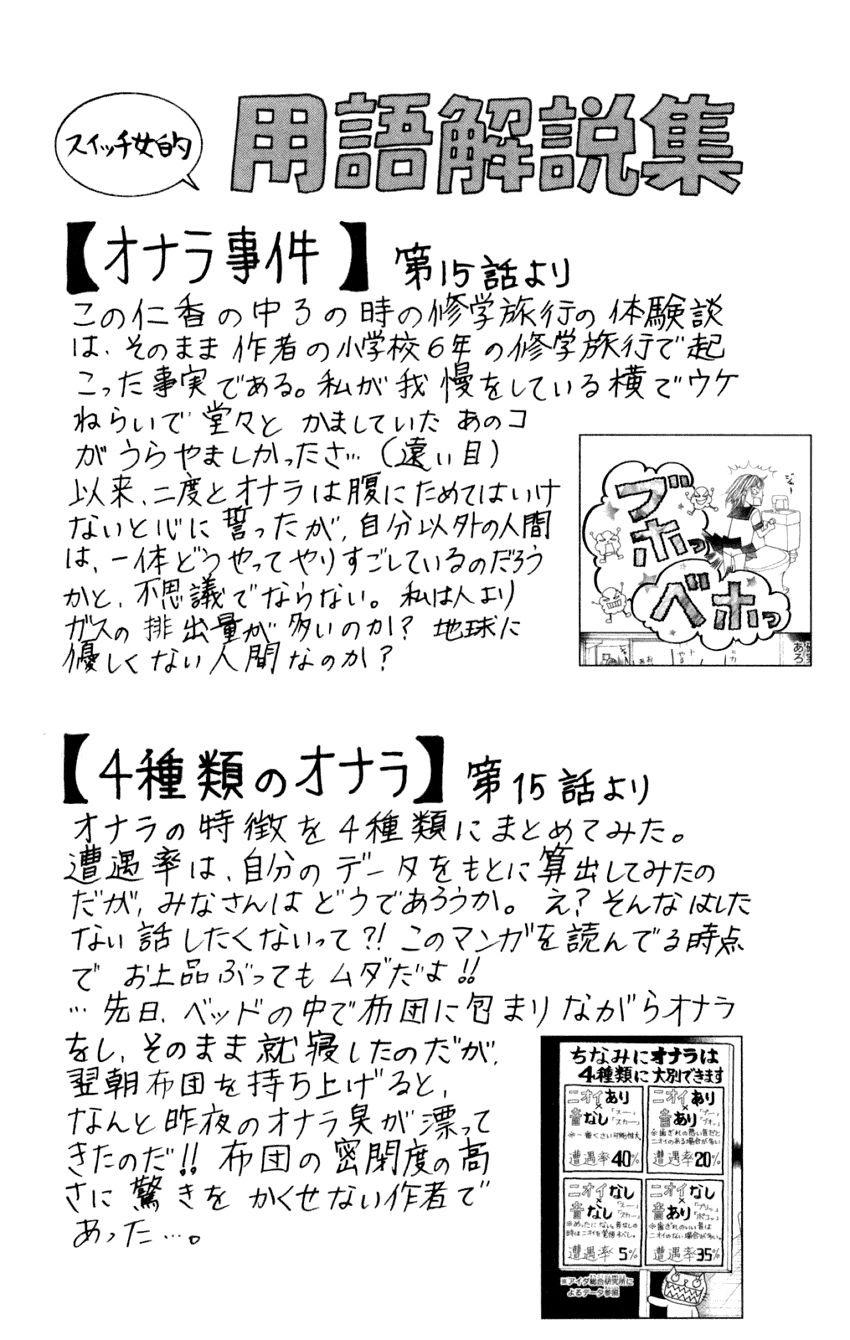 スイッチ女的
用語解説集
【オナラ事件】第15話より
この仁香の中3の時の修学旅行の体験談
は、そのまま作者の小学校6年の修学旅行で起
こった事実である。私が我慢をしている横でウケ
ねらいで堂々とかましていたあのコ
がうらやましかったさ…(遠い目)
以来、二度とオナラは腹にためてはいけ
ないと心に誓ったが、自分以外の人間
は、一体どうやってやりすごしているのだろう
かと、不思議でならない。私は人より
ガスの排出量が多いのか?地球に
優しくない人間なのか?
ブホっ
ベホっ
【4種類のオナラ】第15話より
オナラの特徴を4種類にまとめてみた。
遭遇率は、自分のデータをもとに算出してみたの
だが、みなさんはどうであろうか。え?そんなはした
ない話したくないって?!このマンガを読んでる時点
でお上品ぶってもムダだよ!!
…先日、ベッドの中で布団に包まりながらオナラ
をし、そのまま就寝したのだが、
翌朝布団を持ち上げると、
なんと昨夜のオナラ臭が漂って
きたのだ!!布団の密閉度の高
さに驚きをかくせない作者で
あった…。
ちなみにオナラは
4種類に大別できます
ニオイあり
×
音なし「スー」「スカー」
※一番くさい可能性大
遭遇率40%
ニオイあり
×
音あり「ブー」「ブオッ」
※歯ぎれの悪い音だと
ニオイのある場合が多い
遭遇率20%
ニオイなし
×
音なし「スー」「スカー」
※めったにない。音なしの
時はニオイを覚悟すべし。
遭遇率5%
ニオイなし
×
音あり「プリッ」「ポコッ」
※歯ぎれのいい音は
ニオイのない場合が多い。
遭遇率35%
※アイダ総合研究所に
よるデータ参照